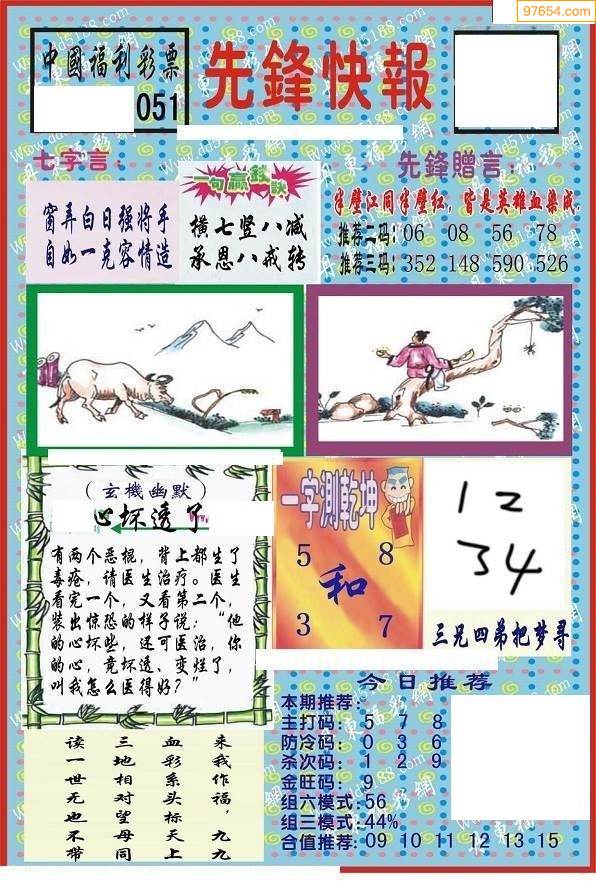 97654.com
中國福利彩票
051
先鋒快報
七字言：
窗弄白日强将手
自如一克容情造
一句赢錢訣
横七竖八减
承恩八戒转
先鋒贈言：
半壁江同半壁红，皆是英雄血染成.
推荐二码：06 08 56 78
推荐三码：352 148 590 526
（玄機幽默）
心坏透了
有两个恶棍，背上都生了
毒疮，请医生治疗。医生
看完一个，又看第二个，
装出惊恐的样子说：“他
的心坏些，还可医治，你
的心，竟坏透、变烂了，
叫我怎么医得好？”
一字測乾坤
5 8
和
3 7
12
34
三兄四弟把梦寻
来我作福，九九
血彩系头标天上
三地相对望母同
读一世无也不带
今日推荐
本期推荐：
主打码：5 7 8
防冷码：0 3 6
杀次码：1 2 9
金旺码：9
组六模式：56
组三模式：44%
合值推荐：09 10 11 12 13 15